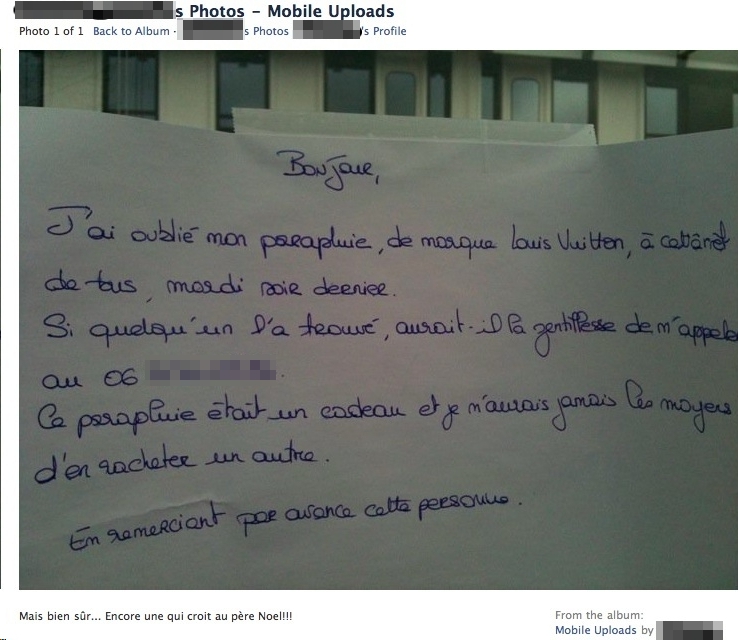 s Photos - Mobile Uploads
Photo 1 of 1 Back to Album · s Photos 's Profile
Bonjour,
J'ai oublié mon parapluie, de marque Louis Vuitton, à cet arrêt
de bus, mardi soir dernier.
Si quelqu'un l'a trouvé, aurait-il la gentillesse de m'appele
au 06
Ce parapluie était un cadeau et je n'aurais jamais les moyens
d'en racheter un autre.
En remerciant par avance cette personne.
Mais bien sûr... Encore une qui croit au père Noel!!!
From the album:
Mobile Uploads by